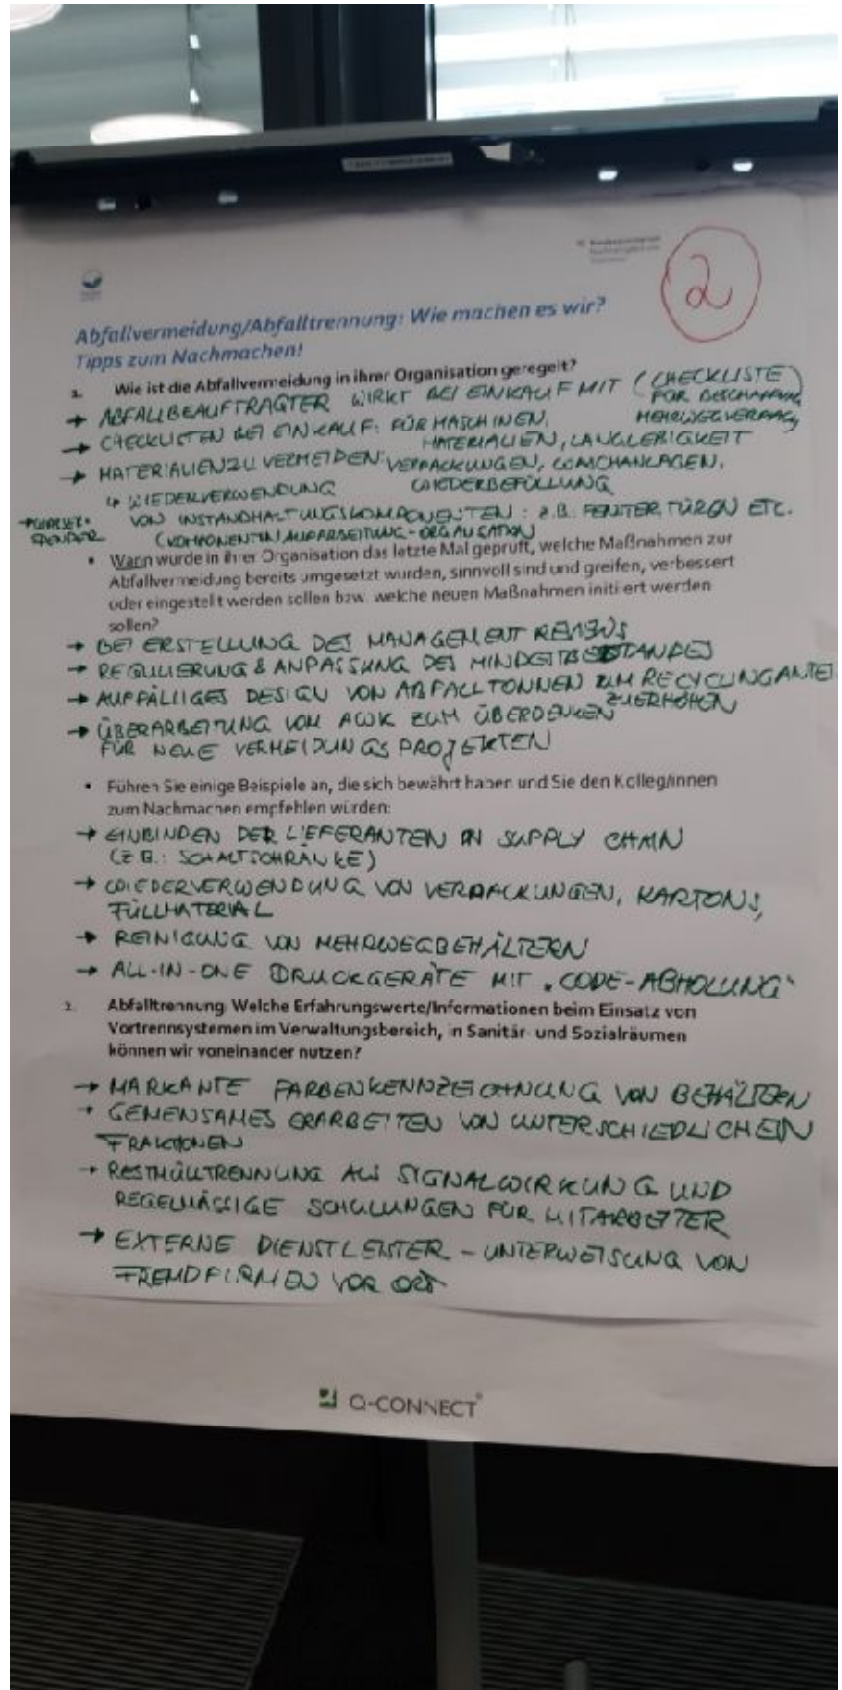 2
Abfallvermeidung/Abfalltrennung: Wie machen es wir?
Tipps zum Nachmachen!
1. Wie ist die Abfallvermeidung in ihrer Organisation geregelt?
→ ABFALLBEAUFTRAGTER WIRKT BEI EINKAUF MIT (CHECKLISTE)
FÜR BESCHAFFUNG
→ CHECKLISTEN BEI EINKAUF: FÜR MASCHINEN,
MEHRWEGVERPACK,
MATERIALIEN, LANGLEBIGKEIT
→ MATERIALIEN ZU VERMEIDEN: VERPACKUNGEN, WASCHANLAGEN,
↳ WIEDERVERWENDUNG WIEDERBEFÜLLUNG
VON INSTANDHALTUNGSKOMPONENTEN: Z.B. FENSTER, TÜREN ETC.
SPENDER
(KOMPONENTENAUFARBEITUNG-ORGANISATION)
• Wann wurde in ihrer Organisation das letzte Mal geprüft, welche Maßnahmen zur
Abfallvermeidung bereits umgesetzt wurden, sinnvoll sind und greifen, verbessert
oder eingestellt werden sollen bzw. welche neuen Maßnahmen initiiert werden
sollen?
→ BEI ERSTELLUNG DES MANAGEMENT REVIEWS
→ REGULIERUNG & ANPASSUNG DES MINDESTBESTANDES
→ AUFFÄLLIGES DESIGN VON ABFALLTONNEN ZUM RECYCLINGANTEI
ZU ERHÖHEN
→ ÜBERARBEITUNG VOM AWK ZUM ÜBERDENKEN
FÜR NEUE VERMEIDUNGSPROJEKTEN
• Führen Sie einige Beispiele an, die sich bewährt haben und Sie den Kolleg/innen
zum Nachmachen empfehlen würden:
→ EINBINDEN DER LIEFERANTEN IN SUPPLY CHAIN
(Z.B.: SCHALTSCHRÄNKE)
→ WIEDERVERWENDUNG VON VERPACKUNGEN, KARTONS,
FÜLLMATERIAL
→ REINIGUNG VON MEHRWEGBEHÄLTERN
→ ALL-IN-ONE DRUCKGERÄTE MIT „CODE-ABHOLUNG“
2. Abfalltrennung: Welche Erfahrungswerte/Informationen beim Einsatz von
Vortrennsystemen im Verwaltungsbereich, in Sanitär- und Sozialräumen
können wir voneinander nutzen?
→ MARKANTE FARBENKENNZEICHNUNG VON BEHÄLTERN
→ GEMEINSAMES ERARBEITEN VON UNTERSCHIEDLICHEN
FRAKTIONEN
→ RESTMÜLLTRENNUNG ALS SIGNALWIRKUNG UND
REGELMÄSSIGE SCHULUNGEN FÜR MITARBEITER
→ EXTERNE DIENSTLEISTER – UNTERWEISUNG VON
FREMDFIRMEN VOR ORT
Q-CONNECT®